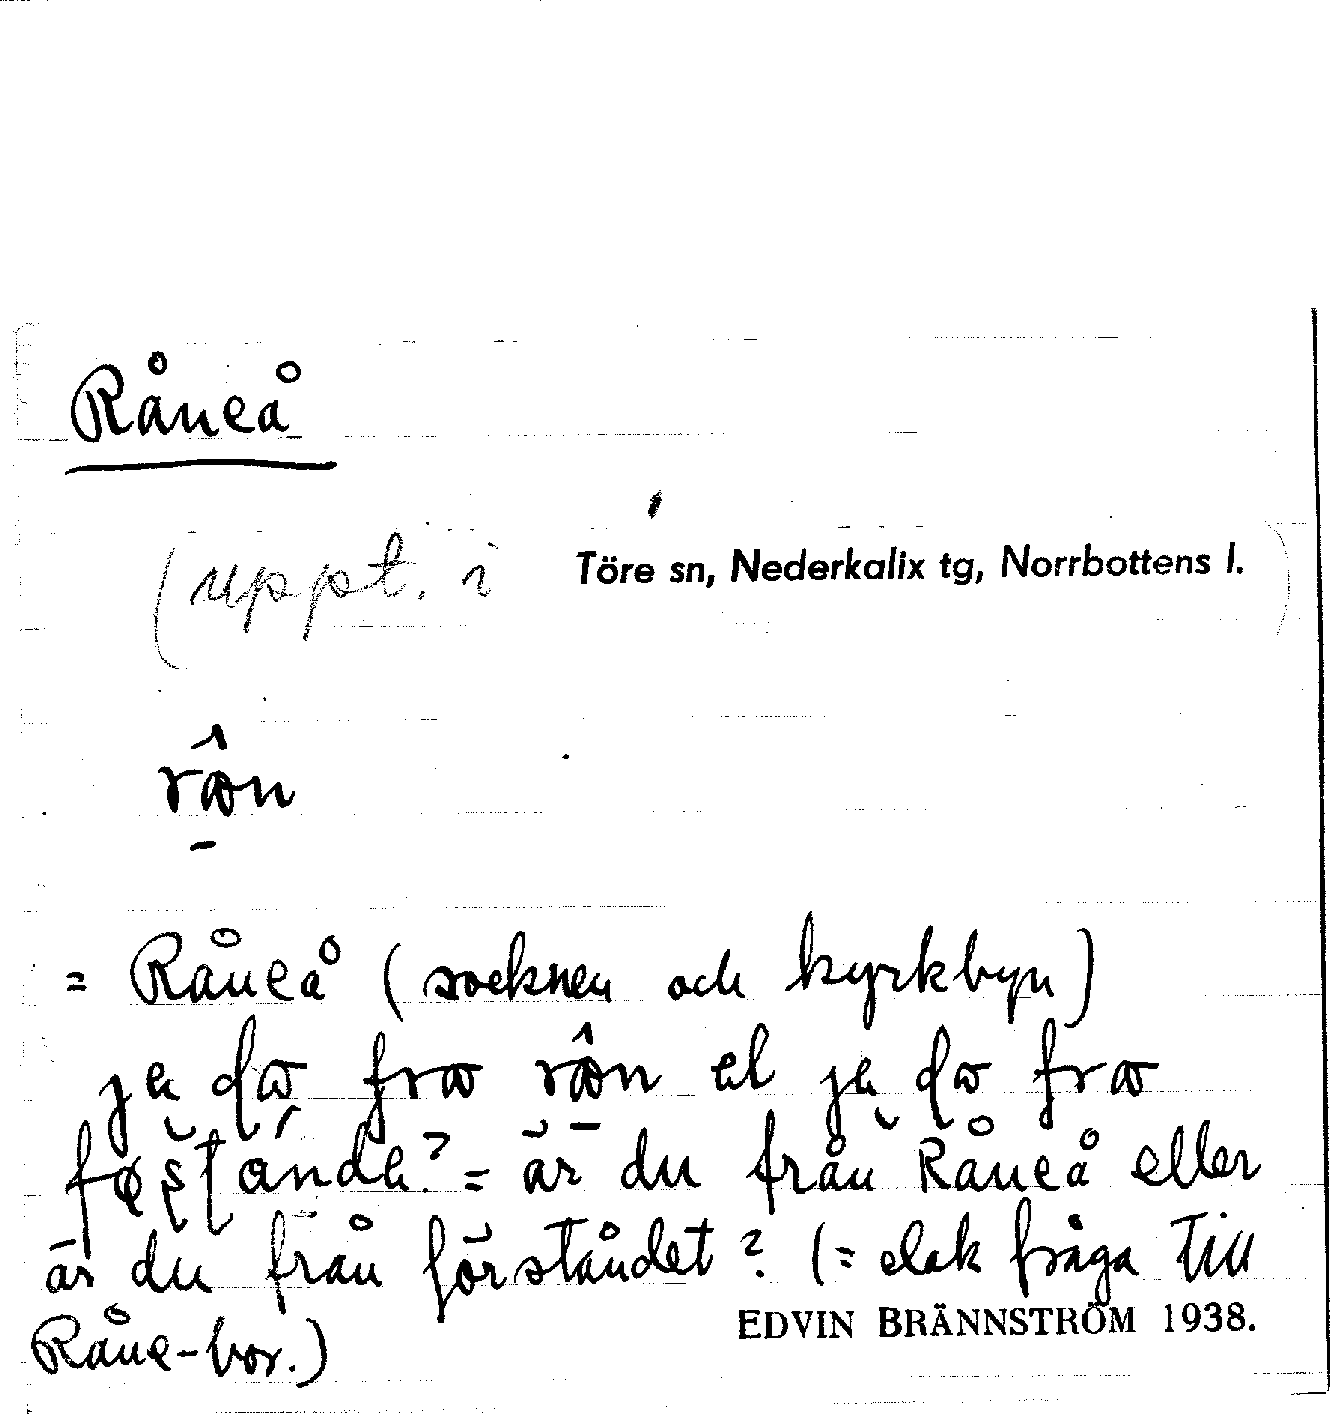 Råneå
(uppt. i Töre sn, Nederkalix tg, Norrbottens l.)
= Råneå (socknen och kyrkbyn)
= är du från Råneå eller
är du från förståndet? (= elak fråga till
Råne-bor.)
EDVIN BRÄNNSTRÖM 1938.